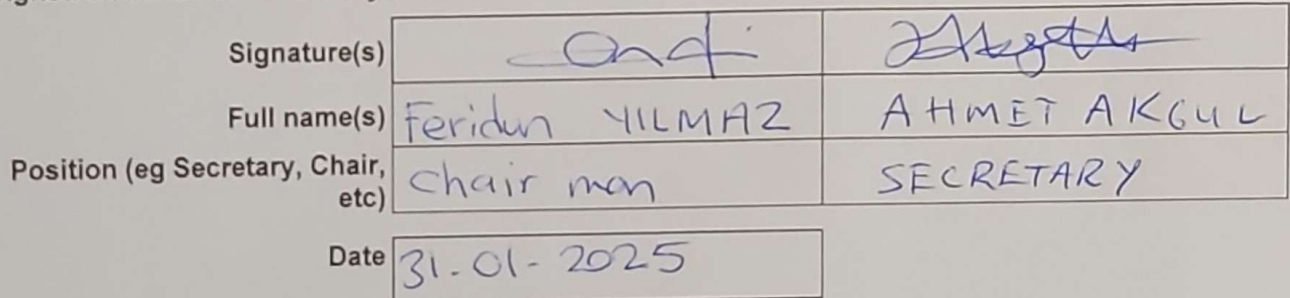 Signature(s)
Full name(s) Feridun YILMAZ AHMET AKGUL
Position (eg Secretary, Chair,
etc) Chair man SECRETARY
Date 31-01-2025